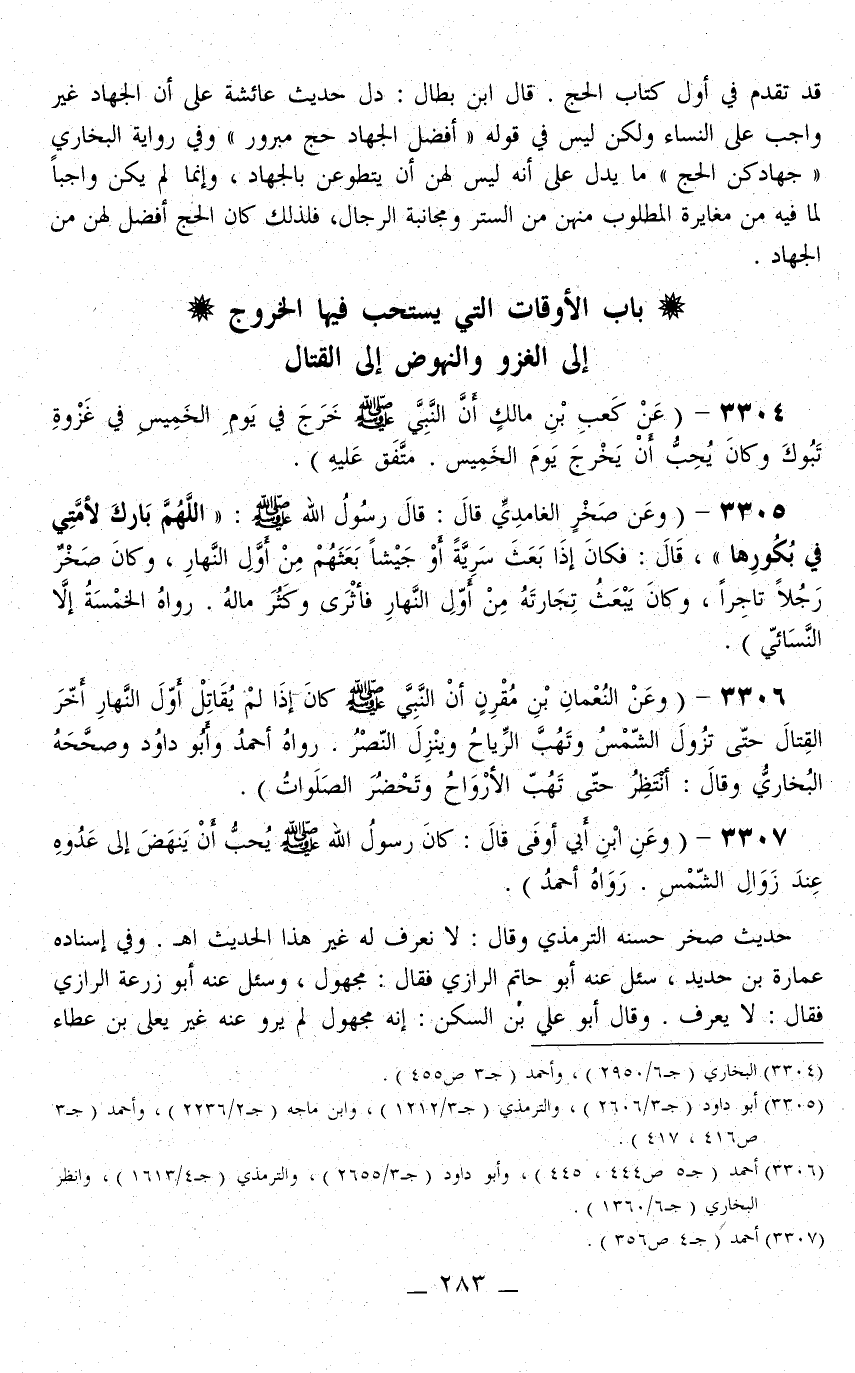 قد تقدم في أول كتاب الحج . قال ابن بطال : دل حديث عائشة على أن الجهاد غير
واجب على النساء ولكن ليس في قوله « أفضل الجهاد حج مبرور » وفي رواية البخاري
« جهادكن الحج » ما يدل على أنه ليس لهن أن يتطوعن بالجهاد ، وإنما لم يكن واجباً
لما فيه من مغايرة المطلوب منهن من الستر ومجانبة الرجال، فلذلك كان الحج أفضل لهن من
الجهاد .
باب الأوقات التي يستحب فيها الخروج
إلى الغزو والنهوض إلى القتال
٣٣٠٤ – ( عَنْ كَعبِ بْنِ مالكٍ أَنَّ النَّبِيَّ ﷺ خَرَجَ في يَومِ الخَمِيسِ في غَزْوةِ
تَبُوكَ وكانَ يُحِبُّ أَنْ يَخْرجَ يَومَ الخَمِيس . متَّفَق عَليهِ ) .
٣٣٠٥ – ( وعَن صَخْرٍ الغامديِّ قالَ : قالَ رسُولُ الله ﷺ : « اللَّهُمَّ بَاركَ لأمَّتِي
في بُكُورِها » ، قَالَ : فكانَ إذَا بَعَثَ سَرِيَّةً أَوْ جَيْشاً بَعَثَهُمْ مِنْ أَوَّلِ النَّهارِ ، وكانَ صَخْرٌ
رَجُلاً تاجِراً ، وكانَ يَبْعَثُ تِجَارتَهُ مِنْ أَوّلِ النَّهارِ فأثْرَى وكَثُرَ مالهُ . رواهُ الخمْسَةُ إلَّا
النَّسَائيّ ) .
٣٣٠٦ – ( وعَنْ النُعْمانِ بْنِ مُقْرِنٍ أنْ النَّبِيَّ ﷺ كانَ إذَا لمْ يُقَاتِلْ أوّلَ النَّهارِ أَخّرَ
القِتالَ حتّى تزُولَ الشّمْسُ وتَهُبَّ الرِّياحُ وينْزِلَ النّصْرُ . رواهُ أحمدُ وأبُو داوُد وصحَّحَهُ
البُخاريُّ وقالَ : أنْتَظِرُ حتّى تَهُبّ الأرْوَاحُ وتَحْضُرَ الصَلَواتُ ) .
٣٣٠٧ – ( وعَنِ ابْنِ أَبي أوفَى قالَ : كانَ رسولُ الله ﷺ يُحبُّ أَنْ يَنهَضَ إلى عَدُوهِ
عِندَ زَوَالِ الشّمْسِ . رَوَاهُ أحمدُ ) .
حديث صخر حسنه الترمذي وقال : لا نعرف له غير هذا الحديث اهـ . وفي إسناده
عمارة بن حديد ، سئل عنه أبو حاتم الرازي فقال : مجهول ، وسئل عنه أبو زرعة الرازي
فقال : لا يعرف . وقال أبو علي بْن السكن : إنه مجهول لم يرو عنه غير يعلى بن عطاء
(٣٣٠٤) البخاري ( جـ٢٩٥٠/٦ ) ، وأحمد ( جـ٣ ص٤٥٥ ) .
(٣٣٠٥) أبو داود ( جـ٢٦٠٦/٣ ) ، والترمذي ( جـ١٢١٢/٣ ) ، وابن ماجه ( جـ٢٢٣٦/٢ ) ، وأحمد ( جـ٣
ص٤١٦ ، ٤١٧ ) .
(٣٣٠٦) أحمد ( جـ٥ ص٤٤٤ ، ٤٤٥ ) ، وأبو داود ( جـ٢٦٥٥/٣ ) ، والترمذي ( جـ١٦١٣/٤ ) ، وانظر
البخاري ( جـ١٣٦٠/٦ ) .
(٣٣٠٧) أحمد ( جـ٤ ص٣٥٦ ) .
– ٢٨٣ –